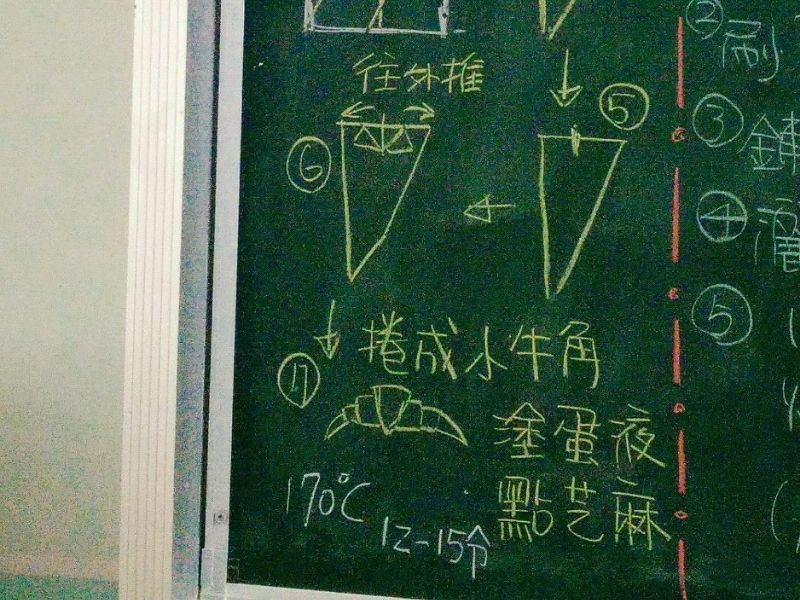 往外推
⑤
⑥
捲成小牛角
⑦
塗蛋液
點芝麻
170°C
12-15分
②刷
③
④
⑤